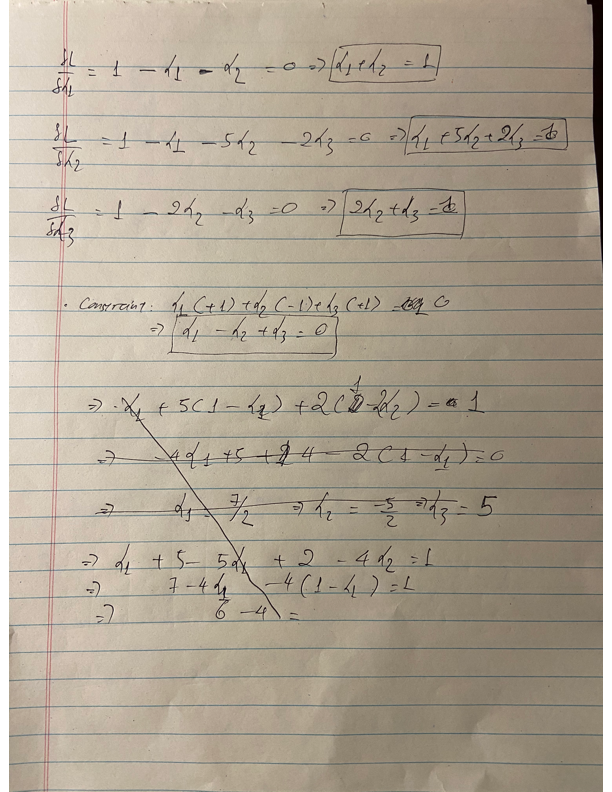 δL/δα1 = 1 - α1 - α2 = 0 ⇒ α1+α2 = 1
δL/δα2 = 1 - α1 - 5α2 - 2α3 = 0 ⇒ α1 + 5α2 + 2α3 = 1
δL/δα3 = 1 - 2α2 - α3 = 0 ⇒ 2α2 + α3 = 1
· Constraint: α1 (+1) + α2 (-1) + α3 (+1) = 0
⇒ α1 - α2 + α3 = 0
⇒ α1 + 5(1 - α1) + 2(1 - 2α2) = 1
⇒ -4α1 + 5 + 4 - 2(1 - α1) = 0
⇒ α1 = 7/2 ⇒ α2 = -5/2 ⇒ α3 = 5
⇒ α1 + 5 - 5α1 + 2 - 4α2 = 1
⇒ 7 - 4α1 - 4(1 - α1) = 1
⇒ 6 - 4 =